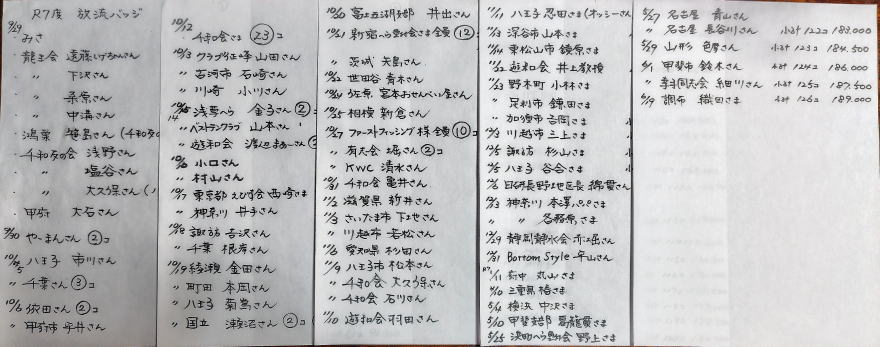 R7度 放流バッジ
9/29
・みさ
・龍王会 遠藤いげちゃんさん
〃 下沢さん
〃 桑原さん
〃 中溝さん
・鴻巣 笹島さん(千和友の
・千和友の会 浅野さん
〃 塩谷さん
〃 大久保さん(
・甲府 大石さん
9/30 やーまんさん ②コ
八王子 市川さん
〃 千葉さん ③コ
10/6 依田さん ②コ
〃 甲府市 平井さん
10/12
千和会さま ㉓コ
山田さん
〃 古河市 石崎さん
〃 川崎 小川さん
浅草へら 金子さん ②コ
〃 ベストランクラブ 山本さん
〃 遊和会
小口さん
〃 村山さん
10/17 東京都 えび鮒会 西崎さま
〃 神奈川 丹子さん
10/18 諏訪 吉沢さん
〃 千葉 根岸さん
10/19 綾瀬 金田さん
〃 町田 本岡さん
〃 八王子 菊島さん
〃 国立 瀬沼さん ②コ
10/20 富士五湖支部 井出さん
10/21 新宿へら野会さま全員 ⑫
〃 茨城 矢島さん
10/22 世田谷 青木さん
10/24 佐原 宮本おせんべい屋さん
10/25 相模 新倉さん
10/27 ファーストフィッシング様 全員 ⑩コ
〃 有志会 堀さん ②コ
〃 KWC 清水さん
千和会 亀井さん
11/2 滋賀県 新井さん
11/3 さいたま市 下地さん
〃 川越市 若松さん
11/6 愛知県 杉田さん
11/9 八王子市 松本さん
〃 千和会 大久保さん
〃 千和会 石川さん
11/10 遊和会 羽田さん
11/11 八王子 忍田さま(オッシーさん
深谷市 山本さま
東松山市 鏡原さま
遊和会 井上教授
野木町 小林さま
〃 足利市 鎌田さま
〃 加須市 吉岡さま
川越市 三上さま
諏訪 杉山さま
八王子 谷合さま
日研長野地区長 綿貫さん
神奈川 本澤パパさま
〃 各務原さま
12/29 静岡静水会 赤堀さん
12/31 Bottom Style 平山さん
1/11 府中 丸山さま
三重県 椿さま
5/4 横浜 中沢さま
5/10 甲斐支部 葛籠貫さま
5/25 決町へら野会 野上さま
5/27 名古屋 青山さん
〃 名古屋 長谷川さん 小計 122コ 183,000
5/29 山形 色摩さん 小計 123コ 184,500
6/1 甲斐市 鈴木さん 小計 124コ 186,000
〃 会 細川さん 小計 125コ 187,500
6/9 調布 織田さま 小計 126コ 189,000